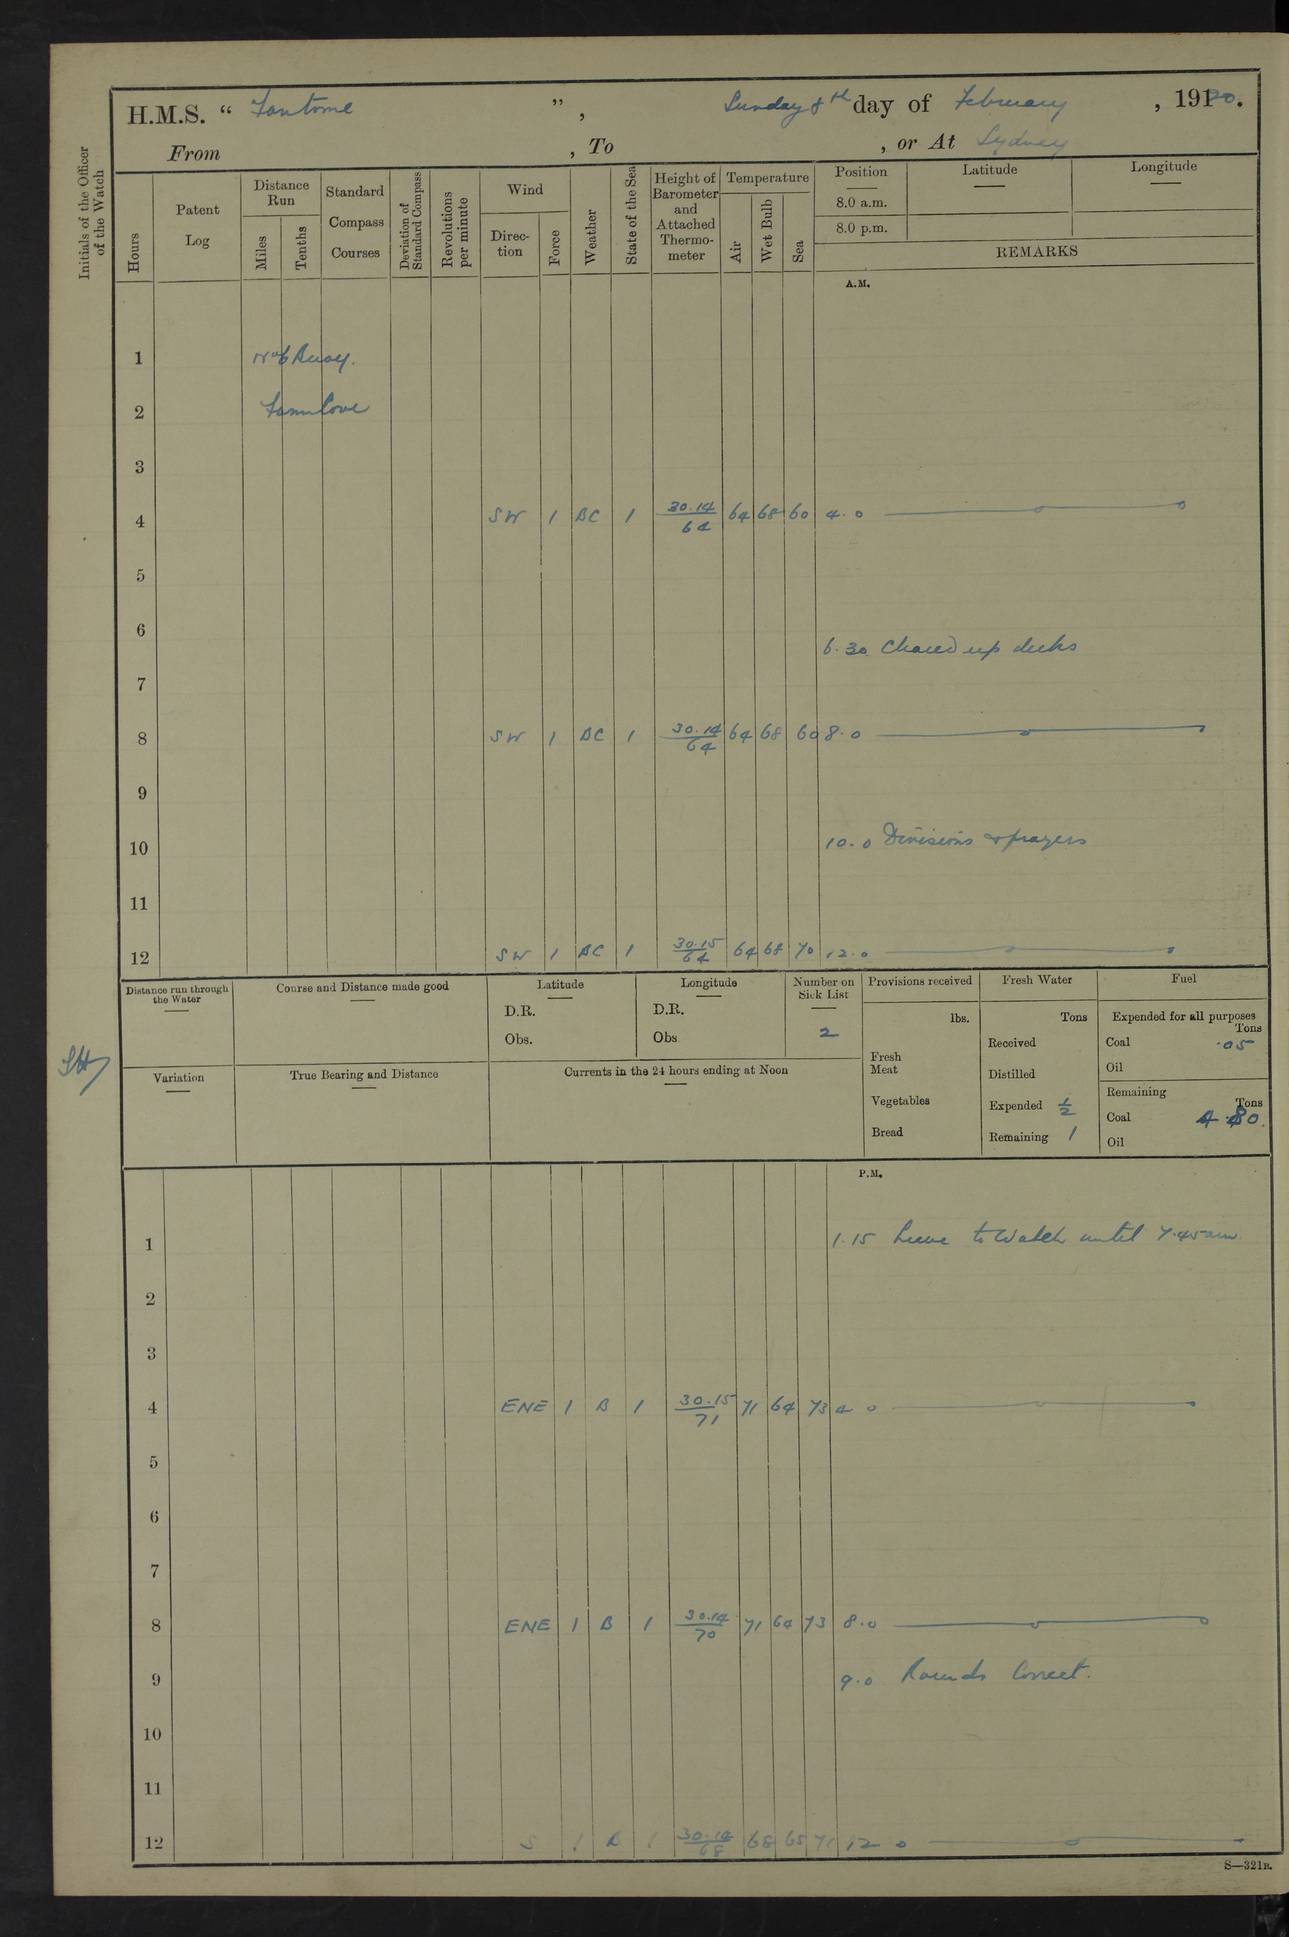 H.M.S. “ Fantome ” , Sunday 8th day of February , 1920.
From , To , or At Sydney
Initials of the Officer of the Watch
Hours
Patent Log
Distance Run
Miles
Tenths
Standard Compass Courses
Deviation of Standard Compass
Revolutions per minute
Wind
Direction
Force
Weather
State of the Sea
Height of Barometer and Attached Thermometer
Temperature
Air
Wet Bulb
Sea
Position
8.0 a.m.
8.0 p.m.
Latitude
Longitude
REMARKS
A.M.
1 No 6 Buoy.
2 Farm Cove
3
4 SW 1 BC 1 30.14/64 64 68 60 4.0
5
6
6.30 Cleared up decks
7
8 SW 1 BC 1 30.14/64 64 68 60 8.0
9
10 10.0 Divisions & prayers
11
12 SW 1 BC 1 30.15/64 64 68 70 12.0
Distance run through the Water
Course and Distance made good
Latitude
D.R.
Obs.
Longitude
D.R.
Obs
Number on Sick List
2
Provisions received
lbs.
Fresh Meat
Vegetables
Bread
Fresh Water
Tons
Received
Distilled
Expended ½
Remaining 1
Fuel
Expended for all purposes
Tons
Coal .05
Oil
Remaining
Tons
Coal 4.80.
Oil
Variation
True Bearing and Distance
Currents in the 24 hours ending at Noon
P.M.
1 1.15 Leave to Watch until 7.45 am.
2
3
4 ENE 1 B 1 30.15/71 71 64 73 4 0
5
6
7
8 ENE 1 B 1 30.14/70 71 64 73 8.0
9 9.0 Rounds Correct.
10
11
12 S 1 B 1 30.14/68 68 65 71 12 0
S—321B.